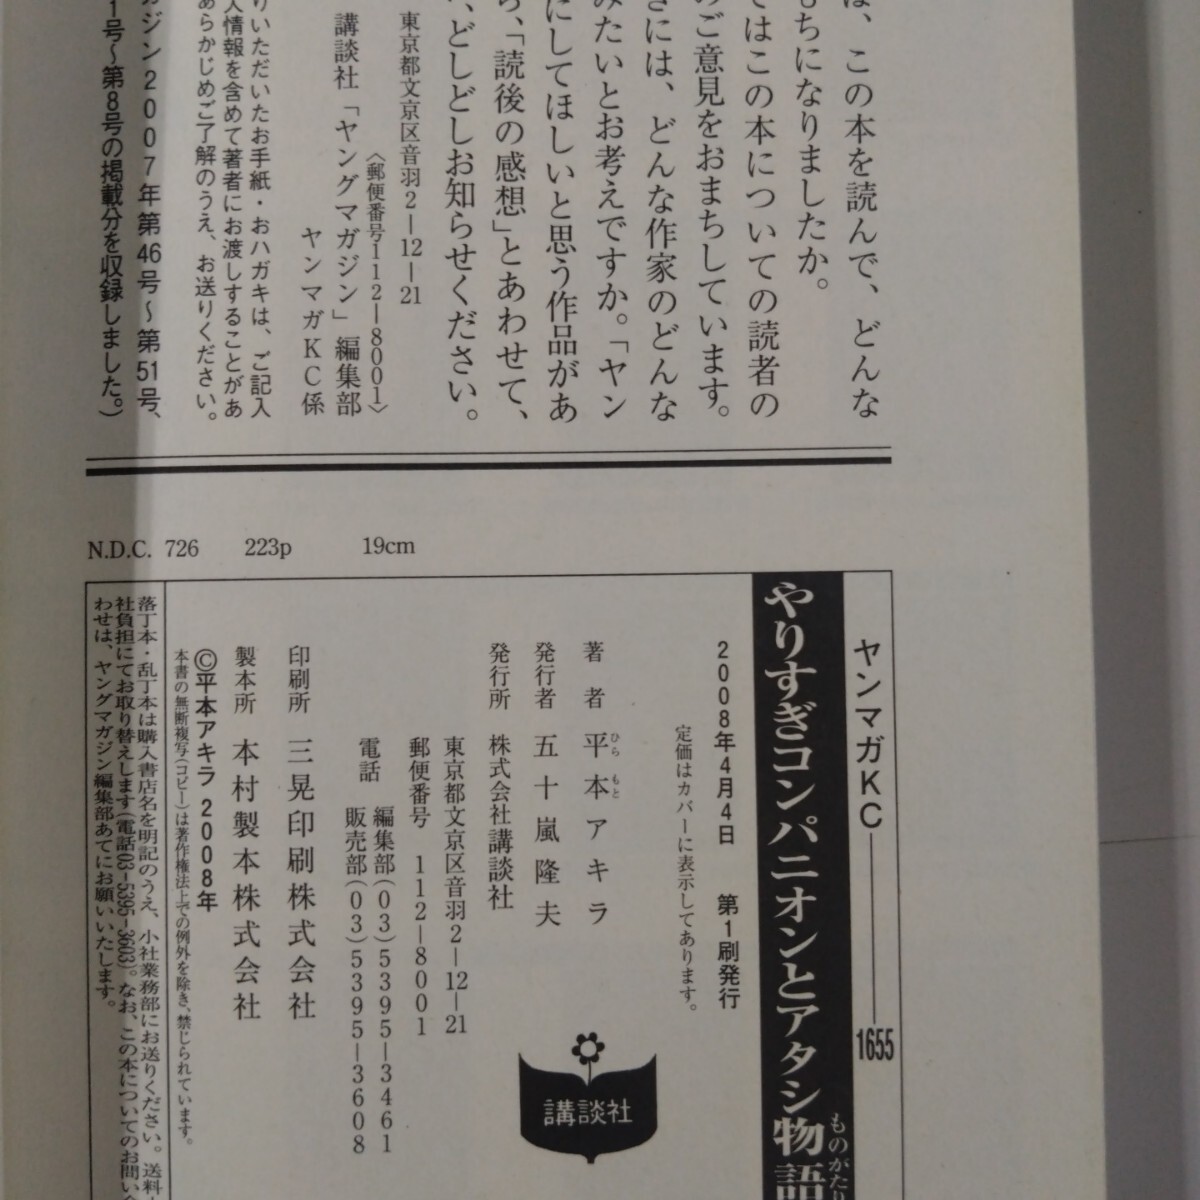 は、この本を読んで、どんな
もちになりましたか。
ではこの本についての読者の
のご意見をおまちしています。
さには、どんな作家のどんな
みたいとお考えですか。「ヤン
にしてほしいと思う作品があ
ら、「読後の感想」とあわせて、
、どしどしお知らせください。
東京都文京区音羽2-12-21
〈郵便番号112-8001〉
講談社「ヤングマガジン」編集部
ヤンマガKC係
りいただいたお手紙・おハガキは、ご記入
人情報を含めて著者にお渡しすることがあ
あらかじめご了解のうえ、お送りください。
ガジン2007年第46号〜第51号、
1号〜第8号の掲載分を収録しました。)
N.D.C. 726 223p 19cm
ヤンマガKC――1655
やりすぎコンパニオンとアタシ物語
ものがたり
2008年4月4日 第1刷発行
定価はカバーに表示してあります。
著者 平本アキラ
ひら もと
発行者 五十嵐隆夫
発行所 株式会社講談社
東京都文京区音羽2-12-21
郵便番号 112-8001
電話 編集部(03)5395-3461
販売部(03)5395-3608
印刷所 三晃印刷株式会社
製本所 本村製本株式会社
©平本アキラ 2008年
本書の無断複写(コピー)は著作権法上での例外を除き、禁じられています。
落丁本・乱丁本は購入書店名を明記のうえ、小社業務部にお送りください。送料
社負担にてお取り替えします(電話03-5395-3603)。なお、この本についてのお問い合
わせは、ヤングマガジン編集部あてにお願いいたします。
講談社